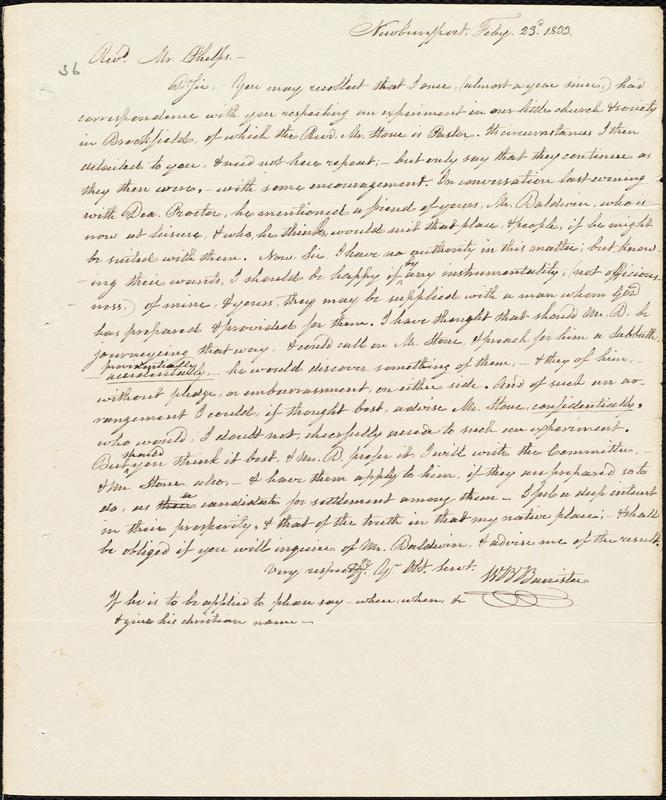 Newburyport, Feby. 23d. 1833.
36
Revd. Mr. Phelps,—
D. Sir, You may recollect that I once, (almost a year since,) had
correspondence with you respecting an experiment in our little church & society
in Brookfield, of which the Revd. Mr. Stone is Pastor. Th circumstances I then
detailed to you, & need not here repeat;— but only say that they continue as
they then were,— with some encouragement. In conversation last evening
with Dea. Proctor, he mentioned a friend of yours, Mr. Baldwin, who is
now at leisure, & who, he thinks, would suit that place, & people, if he might
be suited with them. Now, Sir, I have no authority in this matter; but know-
-ing their wants, I should be happy if by any instrumentality, (not officious-
ness,) of mine, & yours, they may be supplied with a man whom God
has prepared & provided for them. I have thought that should Mr. B. be
journeying that way, & could call on Mr. Stone, & preach for him a Sabbath,
providentially
— accidentally,— he would discover something of them,— & they of him,—
without pledge, or embarrassment, on either side. And of such an ar-
rangement I could, if thought best, advise Mr. Stone, confidentially,
who would, I doubt not, cheerfully accede to such an experiment.
But should you think it best, & Mr. B. prefer it, I will write the Committee,—
& Mr. Stone also,— & have them apply to him, if they are prepared so to
do, as a candidate for settlement among them— I feel a deep interest
in their prosperity, & that of the truth in that my native place;— & shall
be obliged if you will inquire of Mr. Baldwin, & advise me of the result.
Very respectfy. Yr. Obt. Servt.
W B Banister
If he is to be applied to please say— where, when, &
& give his christian name—